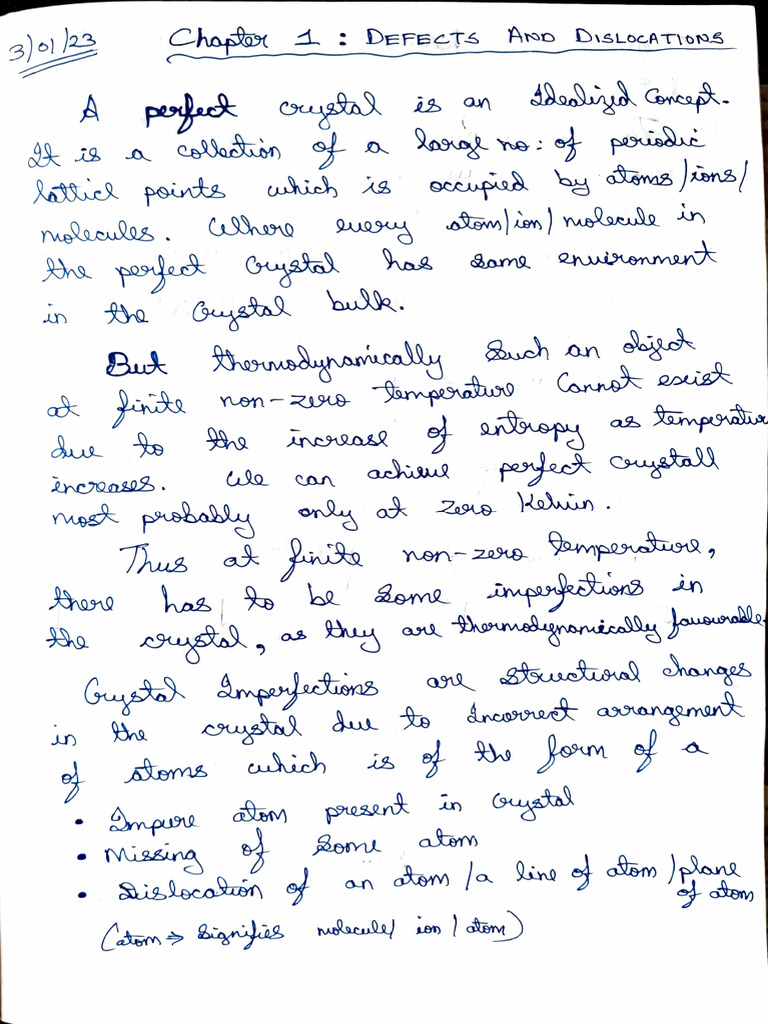 3/01/23 Chapter 1 : DEFECTS AND DISLOCATIONS
A perfect crystal is an Idealized Concept.
It is a collection of a large no: of periodic
lattice points which is occupied by atoms/ions/
molecules. Where every atom/ion/molecule in
the perfect Crystal has same environment
in the Crystal bulk.
But thermodynamically Such an object
at finite non-zero temperature Cannot exist
due to the increase of entropy as temperatur
increases. We can achieve perfect crystall
most probably only at zero Kelvin.
Thus at finite non-zero temperature,
there has to be some imperfections in
the crystal, as they are thermodynamically favourable
Crystal Imperfections are structural changes
in the crystal due to incorrect arrangement
of atoms which is of the form of a
• Impure atom present in Crystal
• Missing of some atom
• Dislocation of an atom/a line of atom/plane
of atom
(atom ⇒ signifies molecule/ion/atom)